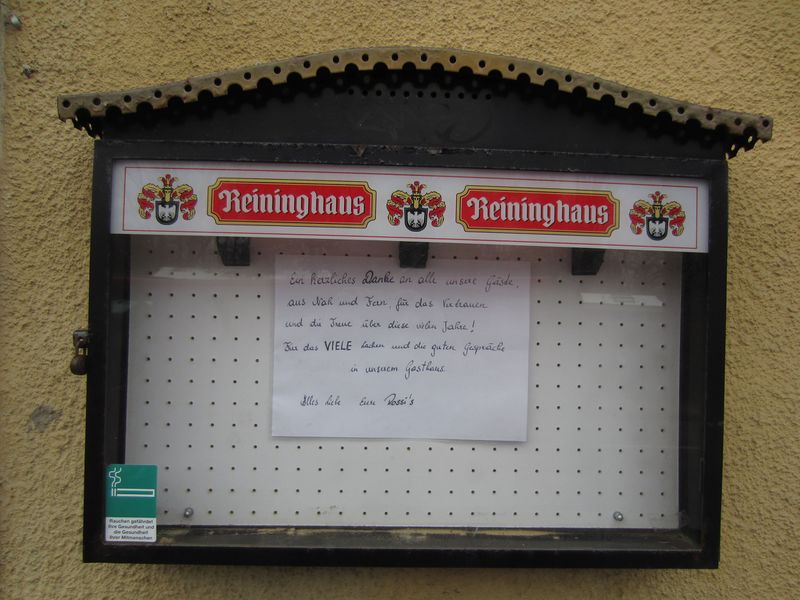 Reininghaus Reininghaus
Ein herzliches Danke an alle unsere Gäste,
aus Nah und Fern für das Vertrauen
und die Treue über diese vielen Jahre!
Für das VIELE Lachen und die guten Gespräche
in unserem Gasthaus.
Alles Liebe Eure Rossi's
Rauchen gefährdet
Ihre Gesundheit und
die Gesundheit
Ihrer Mitmenschen